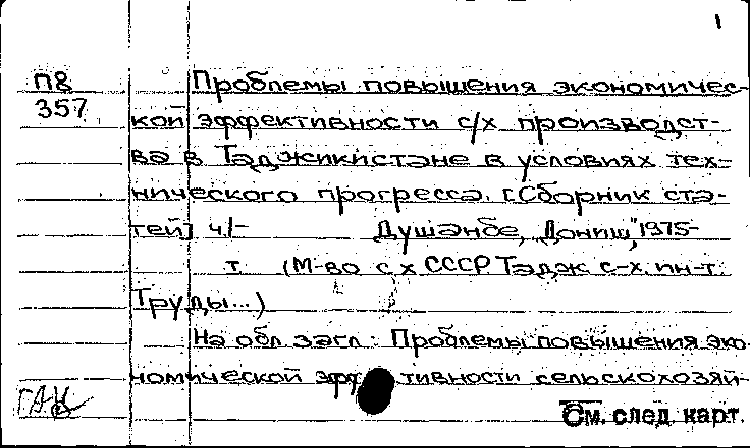 1
П8 Проблемы повышения экономичес-
357
кой эффективности с/х производст-
ва в Таджикистане в условиях тех-
нического прогресса. [Сборник ста-
тей] ч.1- Душанбе, "Дониш", 1975-
т. (М-во с х СССР Тадж. с-х. ин-т.
Труды...)
На обл. загл.: Проблемы повышения эко-
номической эфф тивности сельскохозяй-
См. след. карт.